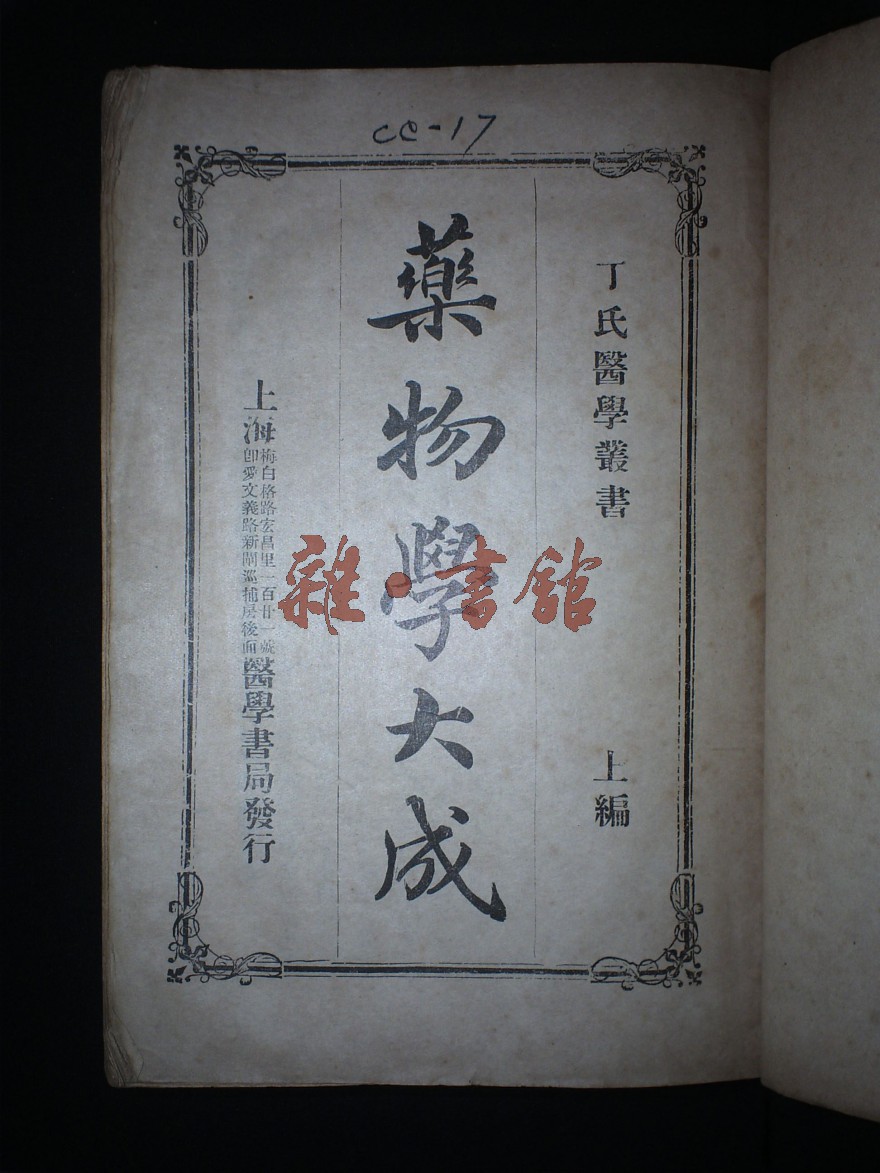 cc-17
丁氏醫學叢書 上編
藥物學大成
上海 梅白格路宏昌里一百廿一號
即愛文義路新閘巡捕房後面 醫學書局發行
雜·書館